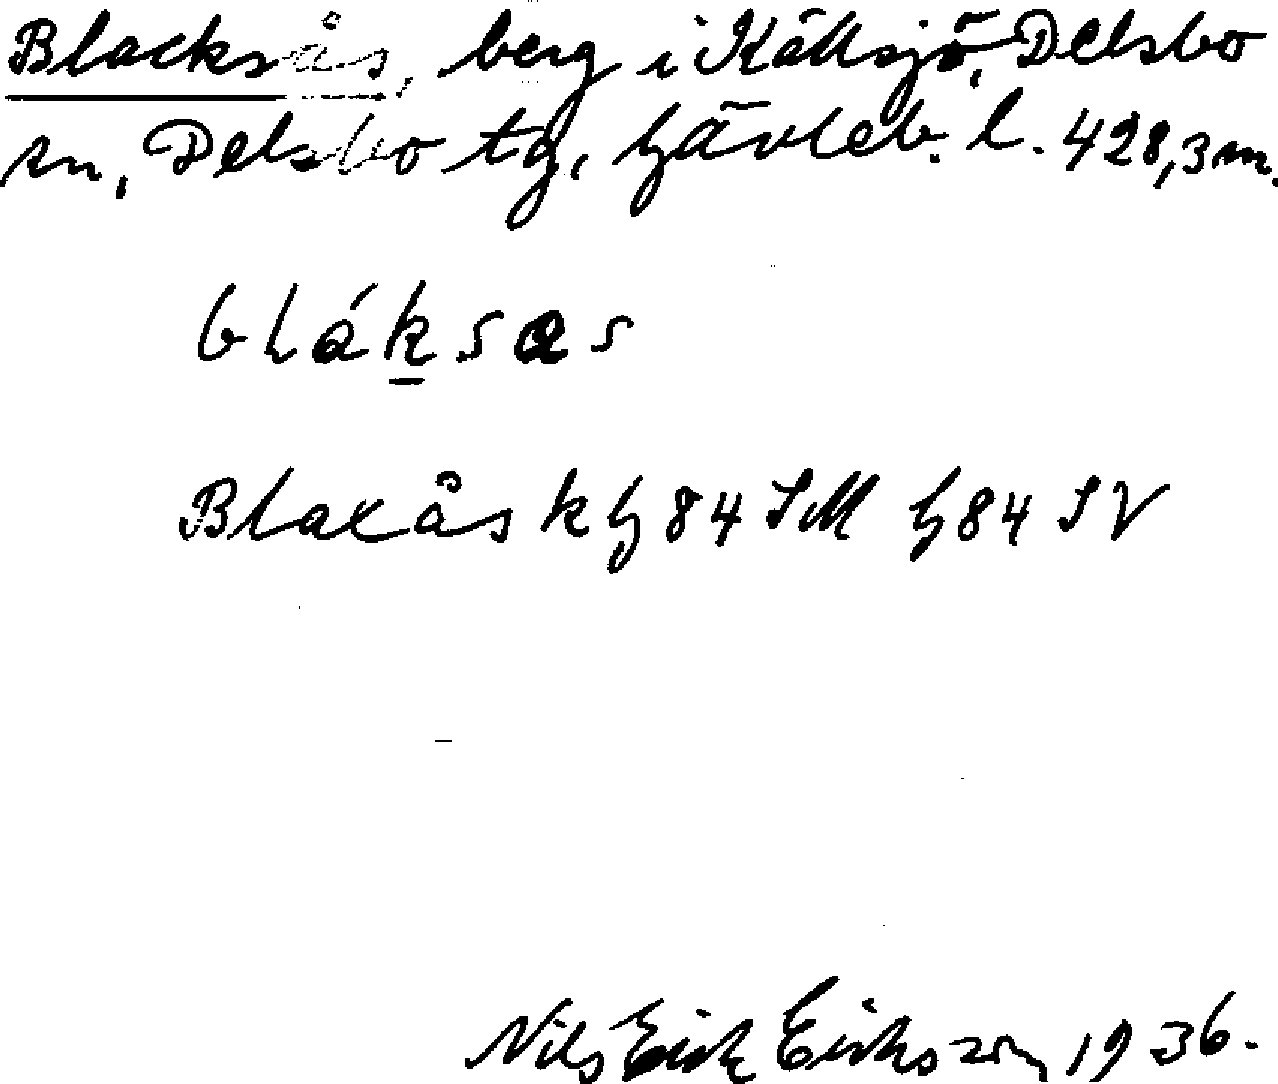 Blacksås, berg i Källsjö, Delsbo
sn, Delsbo tg, Gävleb. l. 428,3 m.
bláksas
Blaxås k G 84 SM G 84 SV
Nils Erik Eriksson 1936.